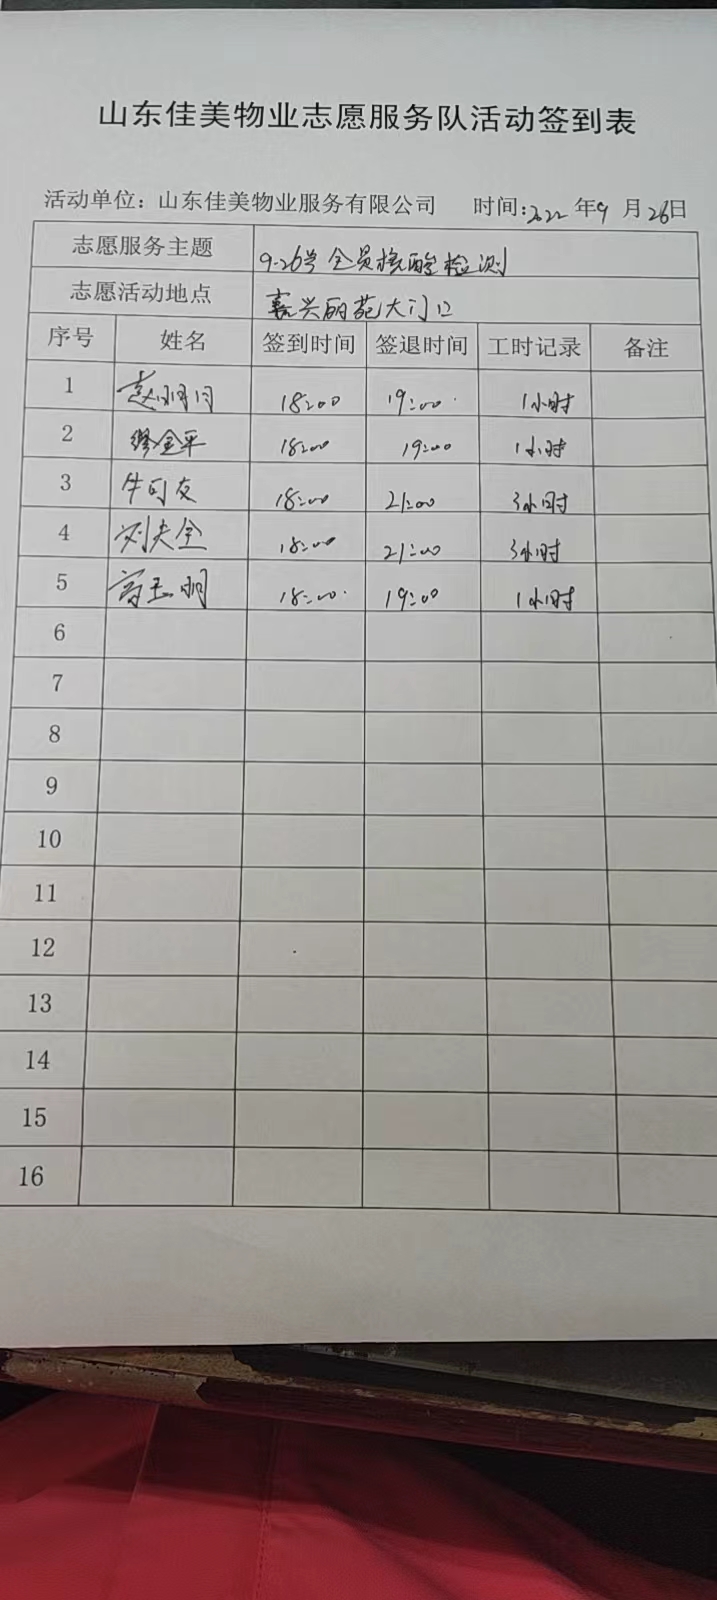 山东佳美物业志愿服务队活动签到表
活动单位：山东佳美物业服务有限公司 时间：2022年9月26日
志愿服务主题 9.26号全员核酸检测
志愿活动地点 嘉兴丽苑大门口
序号 姓名 签到时间 签退时间 工时记录 备注
1 赵 18:00 19:00 1小时
2 缪金平 18:00 19:00 1小时
3 牛 友 18:00 21:00 3小时
4 刘夫全 18:00 21:00 3小时
5 高玉明 18:00 19:00 1小时
6
7
8
9
10
11
12
13
14
15
16